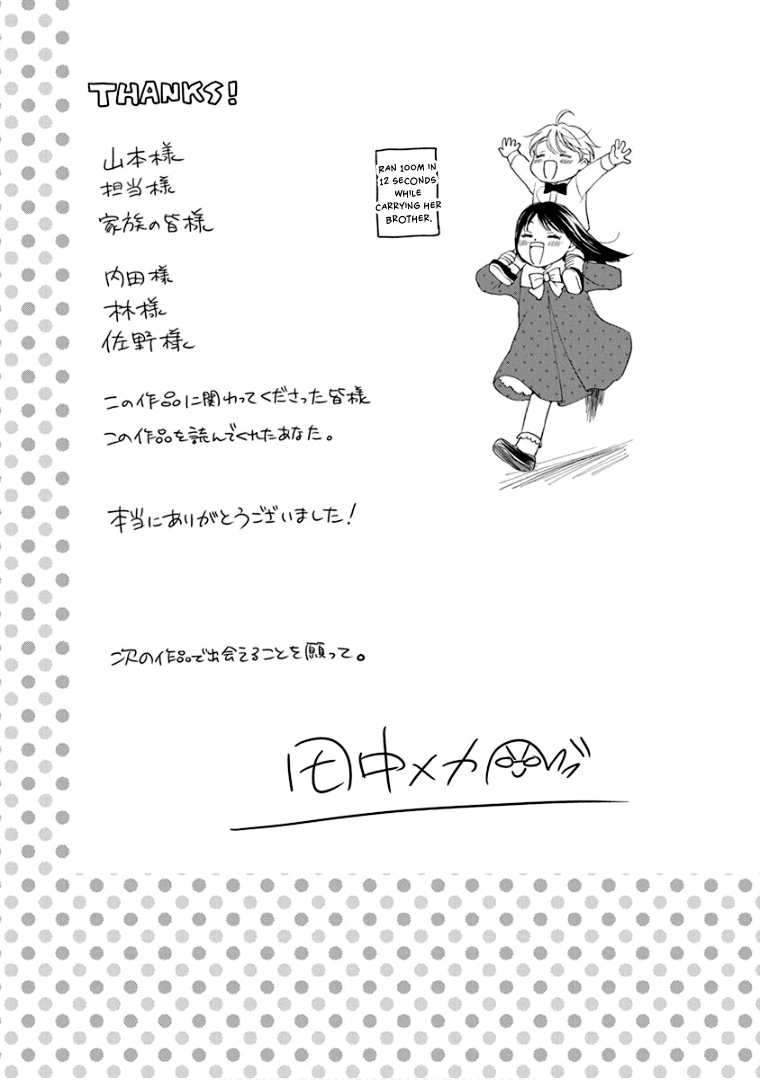 THANKS!
山本様
担当様
家族の皆様
内田様
林様
佐野様
この作品に関わってくださった皆様
この作品を読んでくれたあなた。
本当にありがとうございました!
次の作品で出会えることを願って。
RAN 100M IN
12 SECONDS
WHILE
CARRYING HER
BROTHER.
田中メカ